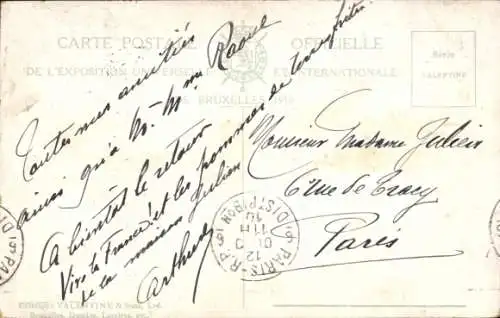 CARTE POSTALE OFFICIELLE
DE L'EXPOSITION UNIVERSELLE ET INTERNATIONALE
BRUXELLES 1910
Série
VALENTINE
Toutes mes amitiés
ainsi qu'à M. Mme Raoul
A bientôt le retour
Vive la France! et les pommes de terre frites
de la maison Julien
Arthur
Monsieur Madame Julien
6 rue de Tracy
Paris
PARIS-R.P.
DISTRIBON
VALENTINE & Sons, Ltd.
Bruxelles, Dundee, Londres, etc.